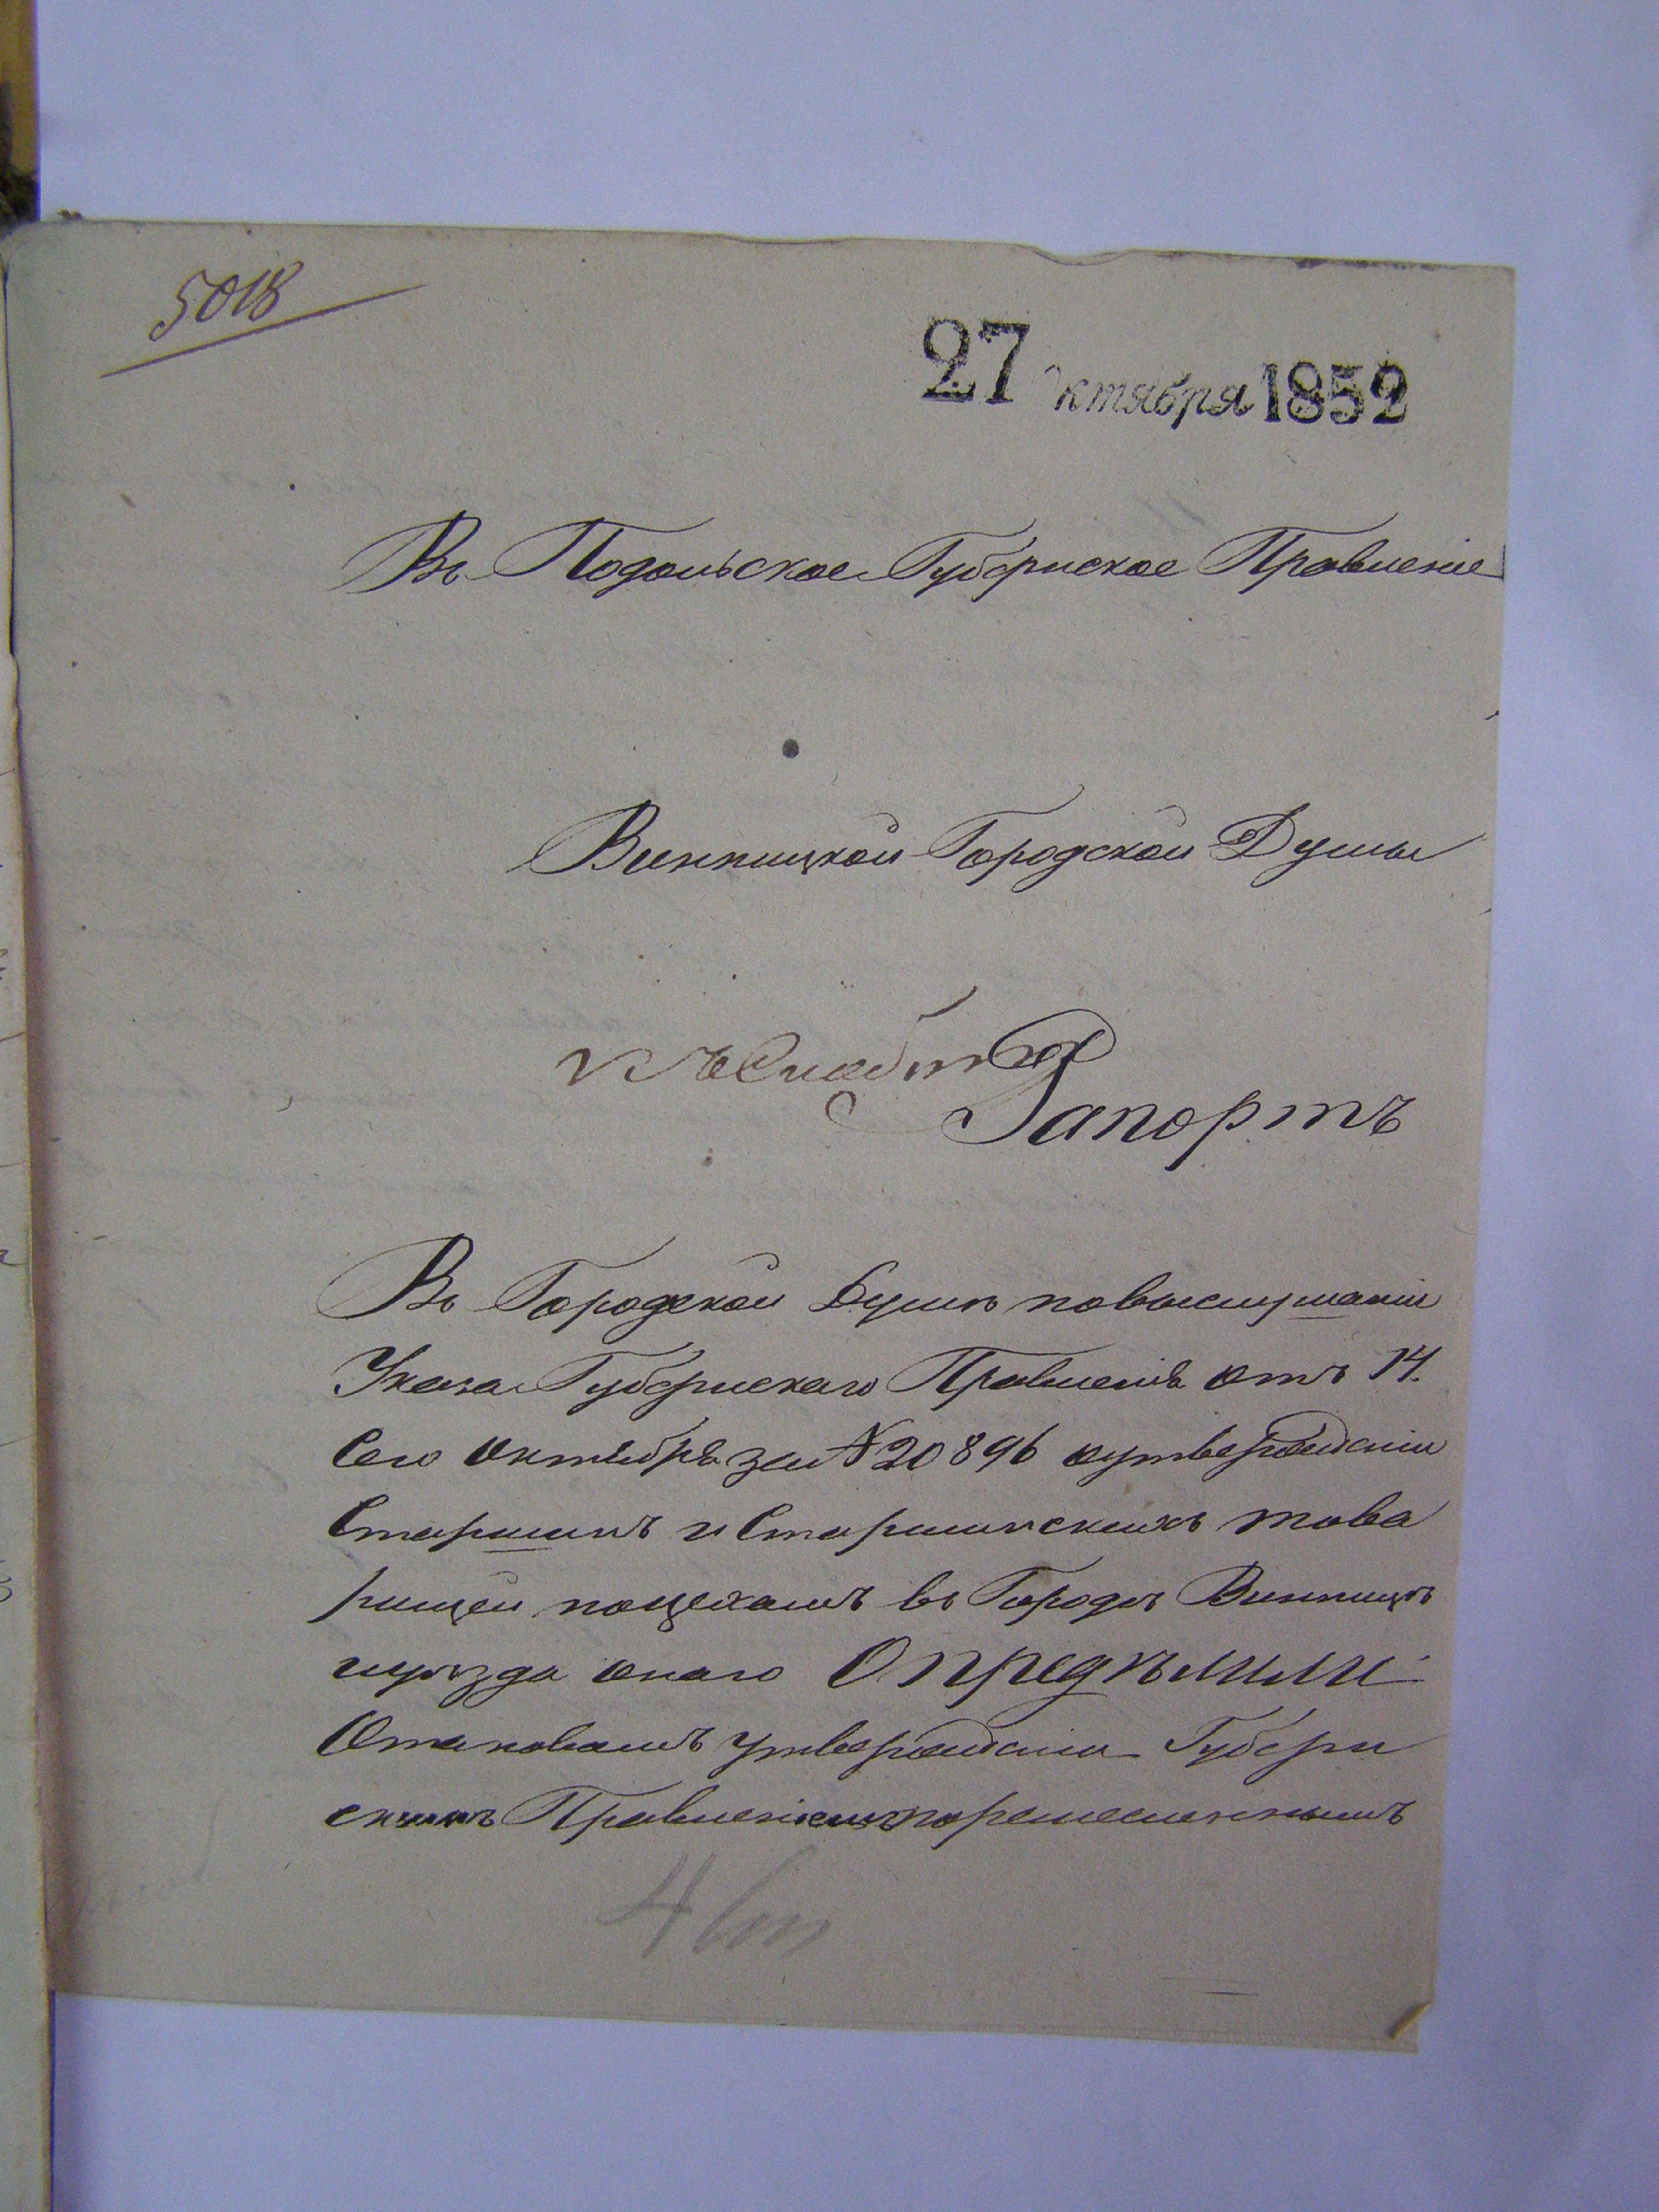 5018
27 октября 1852
Въ Подольское Губернское Правленіе
Винницкой Городской Думы
Рапортъ
Въ Городской Думѣ повыслушаніи
Указа Губернскаго Правленія отъ 14.
Сего Октября за № 20896 оутвержденіи
Старшинъ и Старшинскихъ това
рищей поцехамъ въ Городѣ Винницѣ
иуѣзда онаго Опредѣлили
Отаковомъ утвержденіи Губерн
скимъ Правленіемъ поремесленнымъ